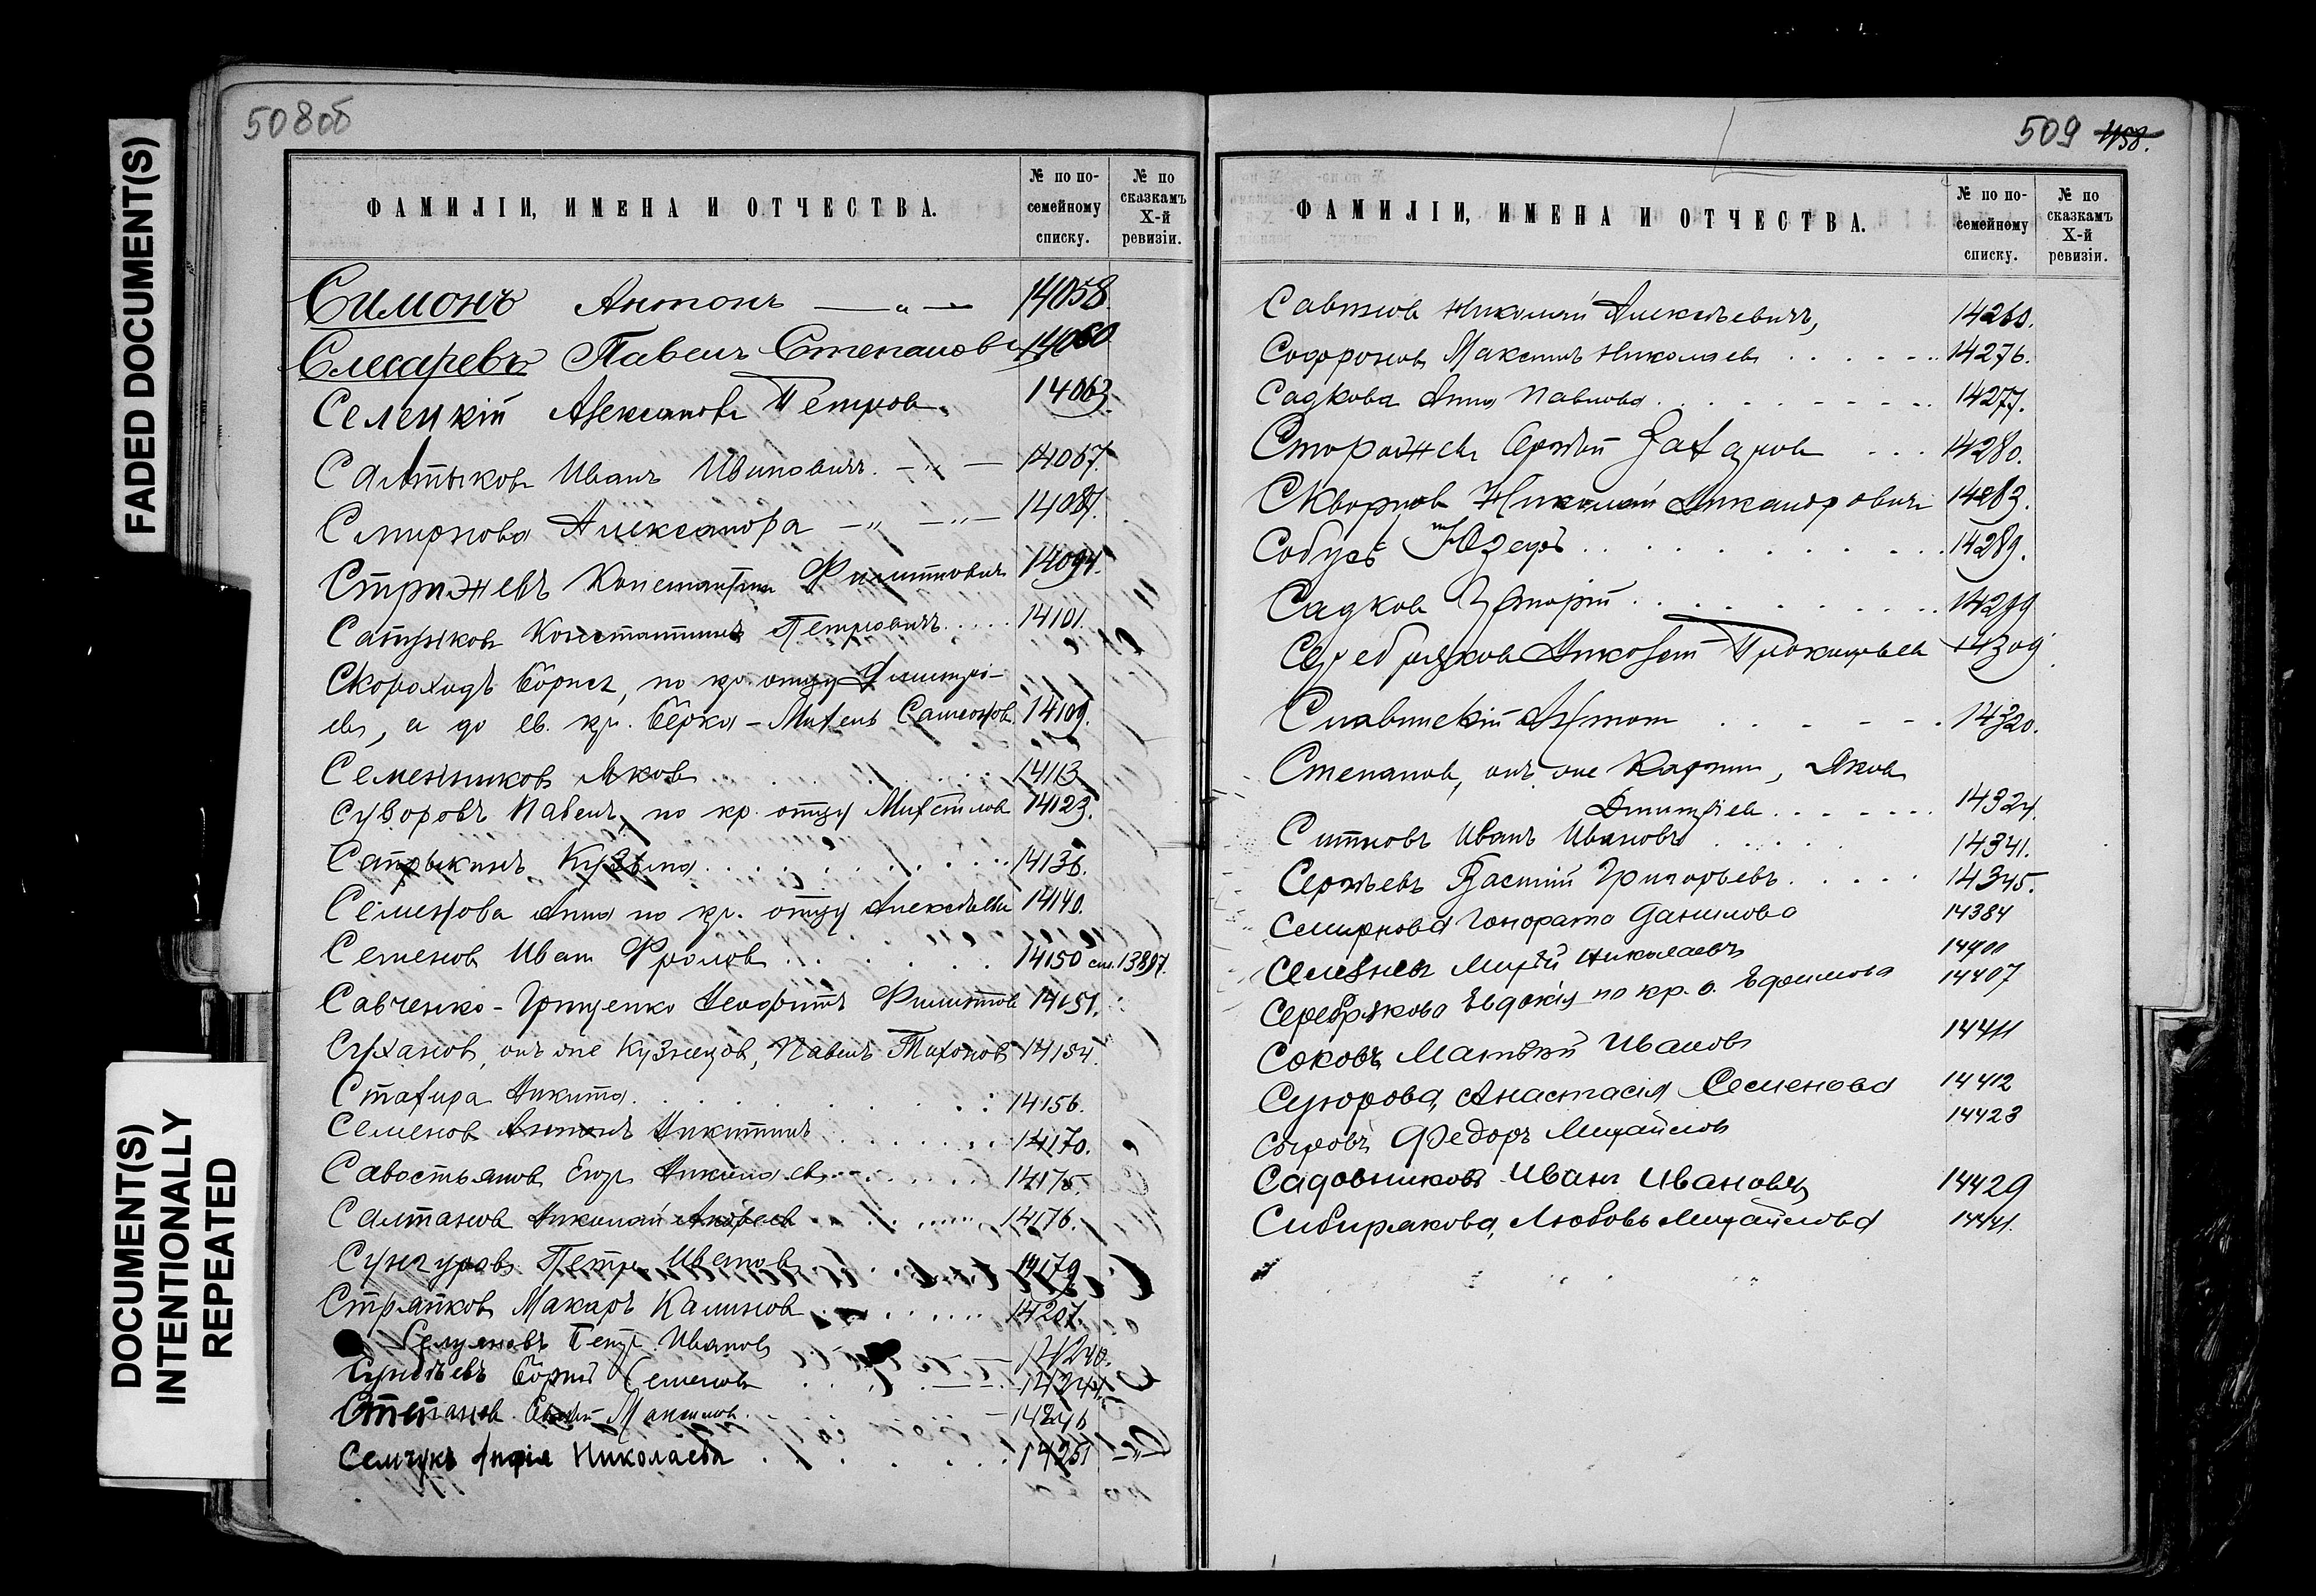 FADED DOCUMENT(S)
DOCUMENT(S)
INTENTIONALLY
REPEATED
508об
ФАМИЛІИ, ИМЕНА И ОТЧЕСТВА.
№ по по-
семейному
списку.
№ по
сказкамъ
X-й
ревизіи.
Симонъ Антонъ — „ — 14058.
Слесаревъ Павелъ Степановъ 14060
Селецкій Александръ Петровъ. 14063.
Салтыковъ Иванъ Ивановичъ. — „ — 14067.
Смирнова Александра — „ — „ — 14087.
Стрижевъ Константинъ Филипповичъ 14094.
Константинъ Петровичъ..... 14101.
Скороходъ Борисъ, по кр. отцу Дмитрі-
евъ, а до св. кр. Берко - Михель 14109.
Семенниковъ Яковъ 14113
Суворовъ Павелъ, по кр. отцу Михайловъ 14123.
Кузьма 14136.
Семенова Анна по кр. отцу Алексѣева 14140.
Семеновъ Иванъ Фроловъ 14150 см. 13897.
Савченко - Грищенко Неофитъ Филипповъ 14151.
Сухановъ, онъ же Кузнецовъ, Павелъ Тихоновъ 14154.
Стахира Никита 14156.
Семеновъ Антонъ Никитинъ 14170.
Савостьяновъ Егоръ Николаевъ 14175.
Салтановъ Николай Андреевъ 14176.
Сунгуровъ Петръ Ивановъ 14179.
Стряпковъ Макаръ Калиновъ 14207.
Петръ Ивановъ 14240.
Борисъ Семеновъ 14244.
Степановъ Максимовъ. 14246
Семчукъ Николаева 14251
509 458.
ФАМИЛІИ, ИМЕНА И ОТЧЕСТВА.
№ по по-
семейному
списку.
№ по
сказкамъ
X-й
ревизіи.
Николай Алексѣевичъ, 14260.
Софроновъ Максимъ Николаевъ 14276.
Садкова Анна Павлова 14277.
Сторожевъ Сергѣй Захаровъ 14280.
Скворцовъ Николай Никандровичъ 14283.
Юзефъ 14289.
Садковъ 14299
Серебряковъ Николай Прокофьевъ 14309.
Славинскій Антонъ 14320.
Степановъ, онъ же Яковъ
Дмитріевъ 14324.
Ситновъ Иванъ Ивановъ 14341.
Сергѣевъ Василій Григорьевъ 14345.
Смирнова Гонората Данилова 14384
Николаевъ 14400
Серебрякова Евдокія по кр. о. Ефимова 14407
Соковъ Матвѣй Ивановъ 14411
Анастасія Семенова 14412
Сыровъ Федоръ Михайловъ 14423
Садовниковъ Иванъ Ивановъ 14429
Сибирякова, Любовь Михайлова 14441.